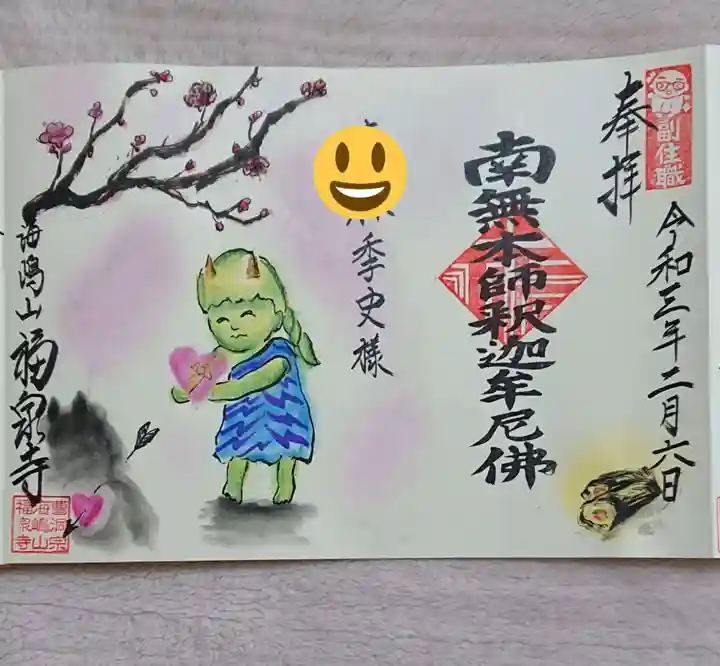 奉拝
副住職
令和三年二月六日
南無本師釈迦牟尼佛
季史様
海嶋山
福泉寺
曹洞宗
海嶋山
福泉寺